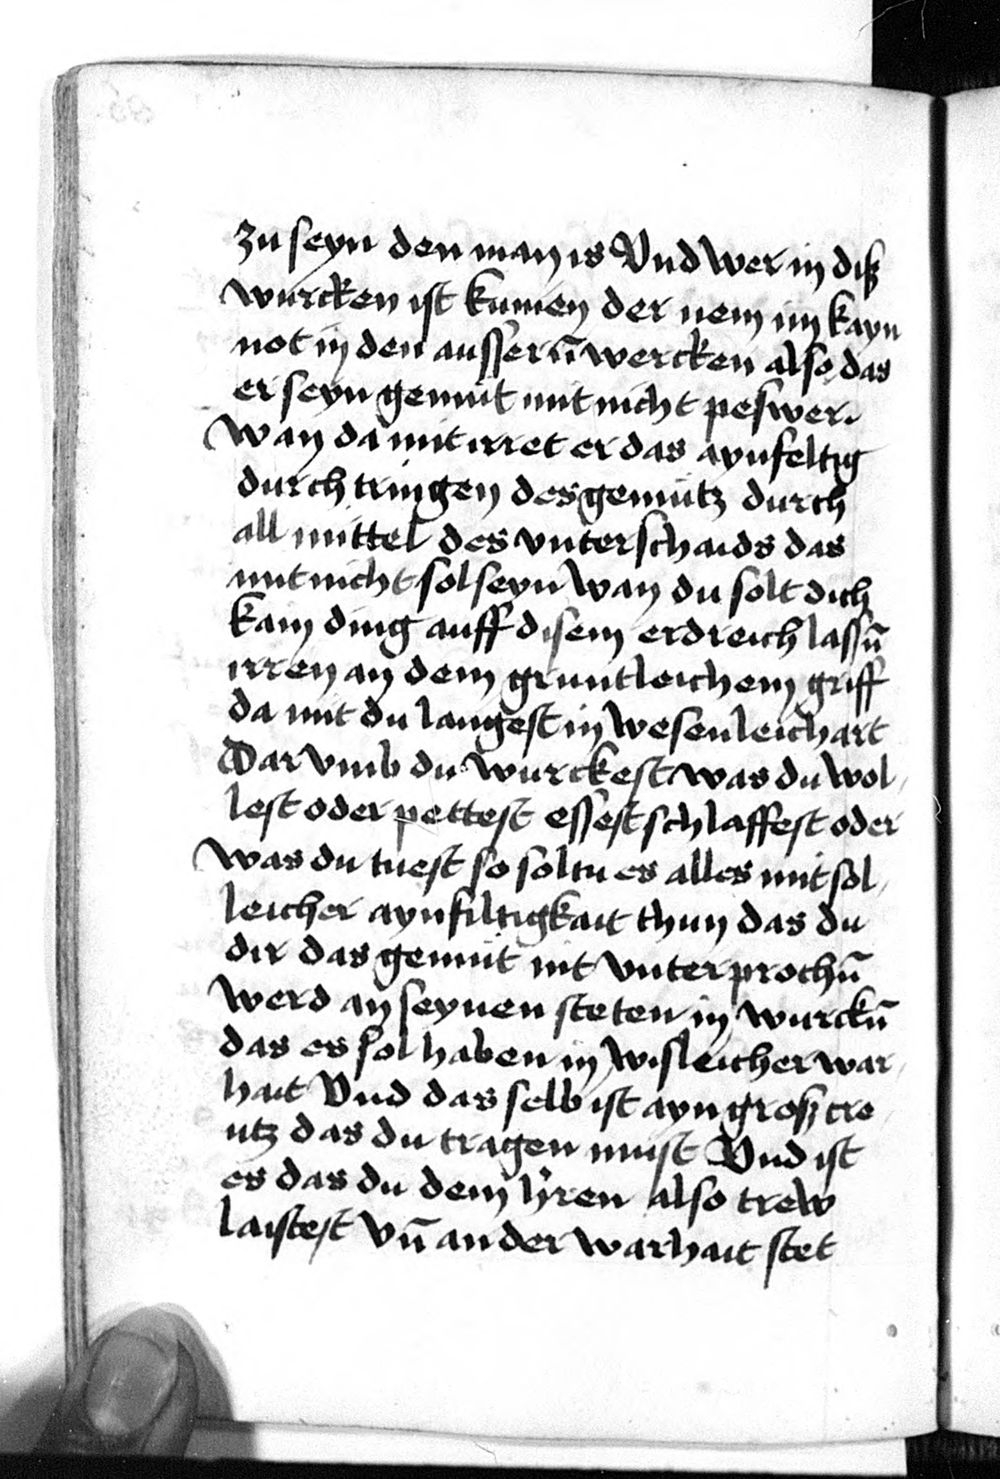 zu seyn den man is Vnd wer in diß
wurcken ist kumen der nem im kayn
not in den ausserñ wercken also das
er seyn gemüt mit nicht peswer.
wan da mit irret er das aynfeltig
durch tringen des gemütz durch
all mittel des vnterschaids das
mit nicht sol seyn wan du solt dich
kain ding auff disem erdreich lassñ
irren an dem gruntleichem griff
da mit du langest in wesenleich art
Dar vmb du wurckest was du wol-
lest oder pettest essest schlaffest oder
was du tuest so soltu es alles mit sol-
leicher aynfiltigkait thun das du
dir das gemüt nit vnterprochñ
werd an seynen steten in wurckñ
das es sol haben in wisleicher war-
hait Vnd das selb ist ayn groß cre-
utz das du tragen müst Vnd ist
es das du dem h̓ren also trew
laistest vñ an der warhait stet